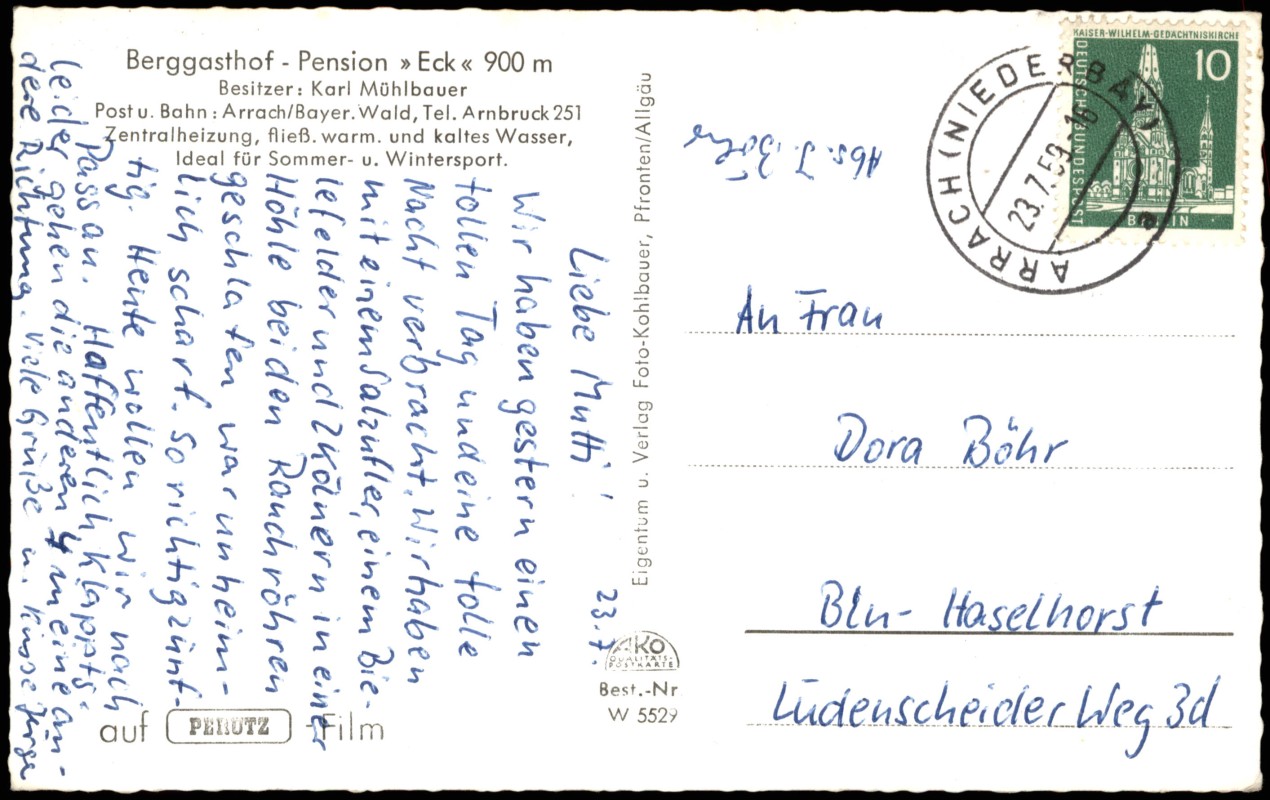 Berggasthof - Pension » Eck « 900 m
Besitzer: Karl Mühlbauer
Post u. Bahn: Arrach/Bayer. Wald, Tel. Arnbruck 251
Zentralheizung, fließ. warm. und kaltes Wasser,
Ideal für Sommer- u. Wintersport.
23.7.
Liebe Mutti!
Wir haben gestern einen
tollen Tag und eine tolle
Nacht verbracht. Wir haben
mit einem Salzufler, einem Bie-
lefelder und 2 Kölnern in einer
Höhle bei den Rauchröhren
geschlafen war unheim-
lich scharf. So richtig zünf-
tig. Heute wollen wir nach
Passau. Hoffentlich klappts.
leider gehen die anderen 4 in eine an-
dere Richtung. Viele Grüße u. Küsse Jürgen
auf PERUTZ Film
Eigentum u. Verlag Foto-Kohlbauer, Pfronten/Allgäu
AKO
QUALITÄTS-
POSTKARTE
Best.-Nr
W 5529
Abs. J. Böhr
ARRACH (NIEDERBAY)
23.7.59-16
e
KAISER-WILHELM-GEDÄCHTNISKIRCHE
10
DEUTSCHE BUNDESPOST
BERLIN
An Frau
Dora Böhr
Bln- Haselhorst
Lüdenscheider Weg 3d